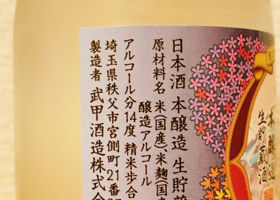 日本酒 本醸造 生貯蔵
原材料名 米(国産)米麹(国産
醸造アルコール
アルコール分14度 精米歩合
埼玉県秩父市宮側町21番
製造者 武甲酒造株式会